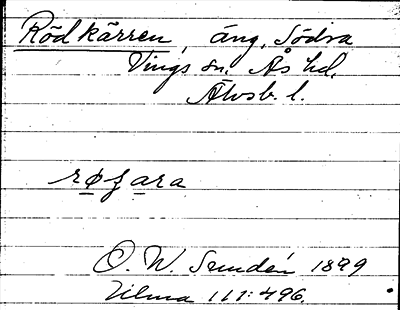 Rödkärren, äng, Södra
Vings sn. Ås hd.
Älvsb. l.
røfara
O. W. Sundén 1899
Vilma 111:496.